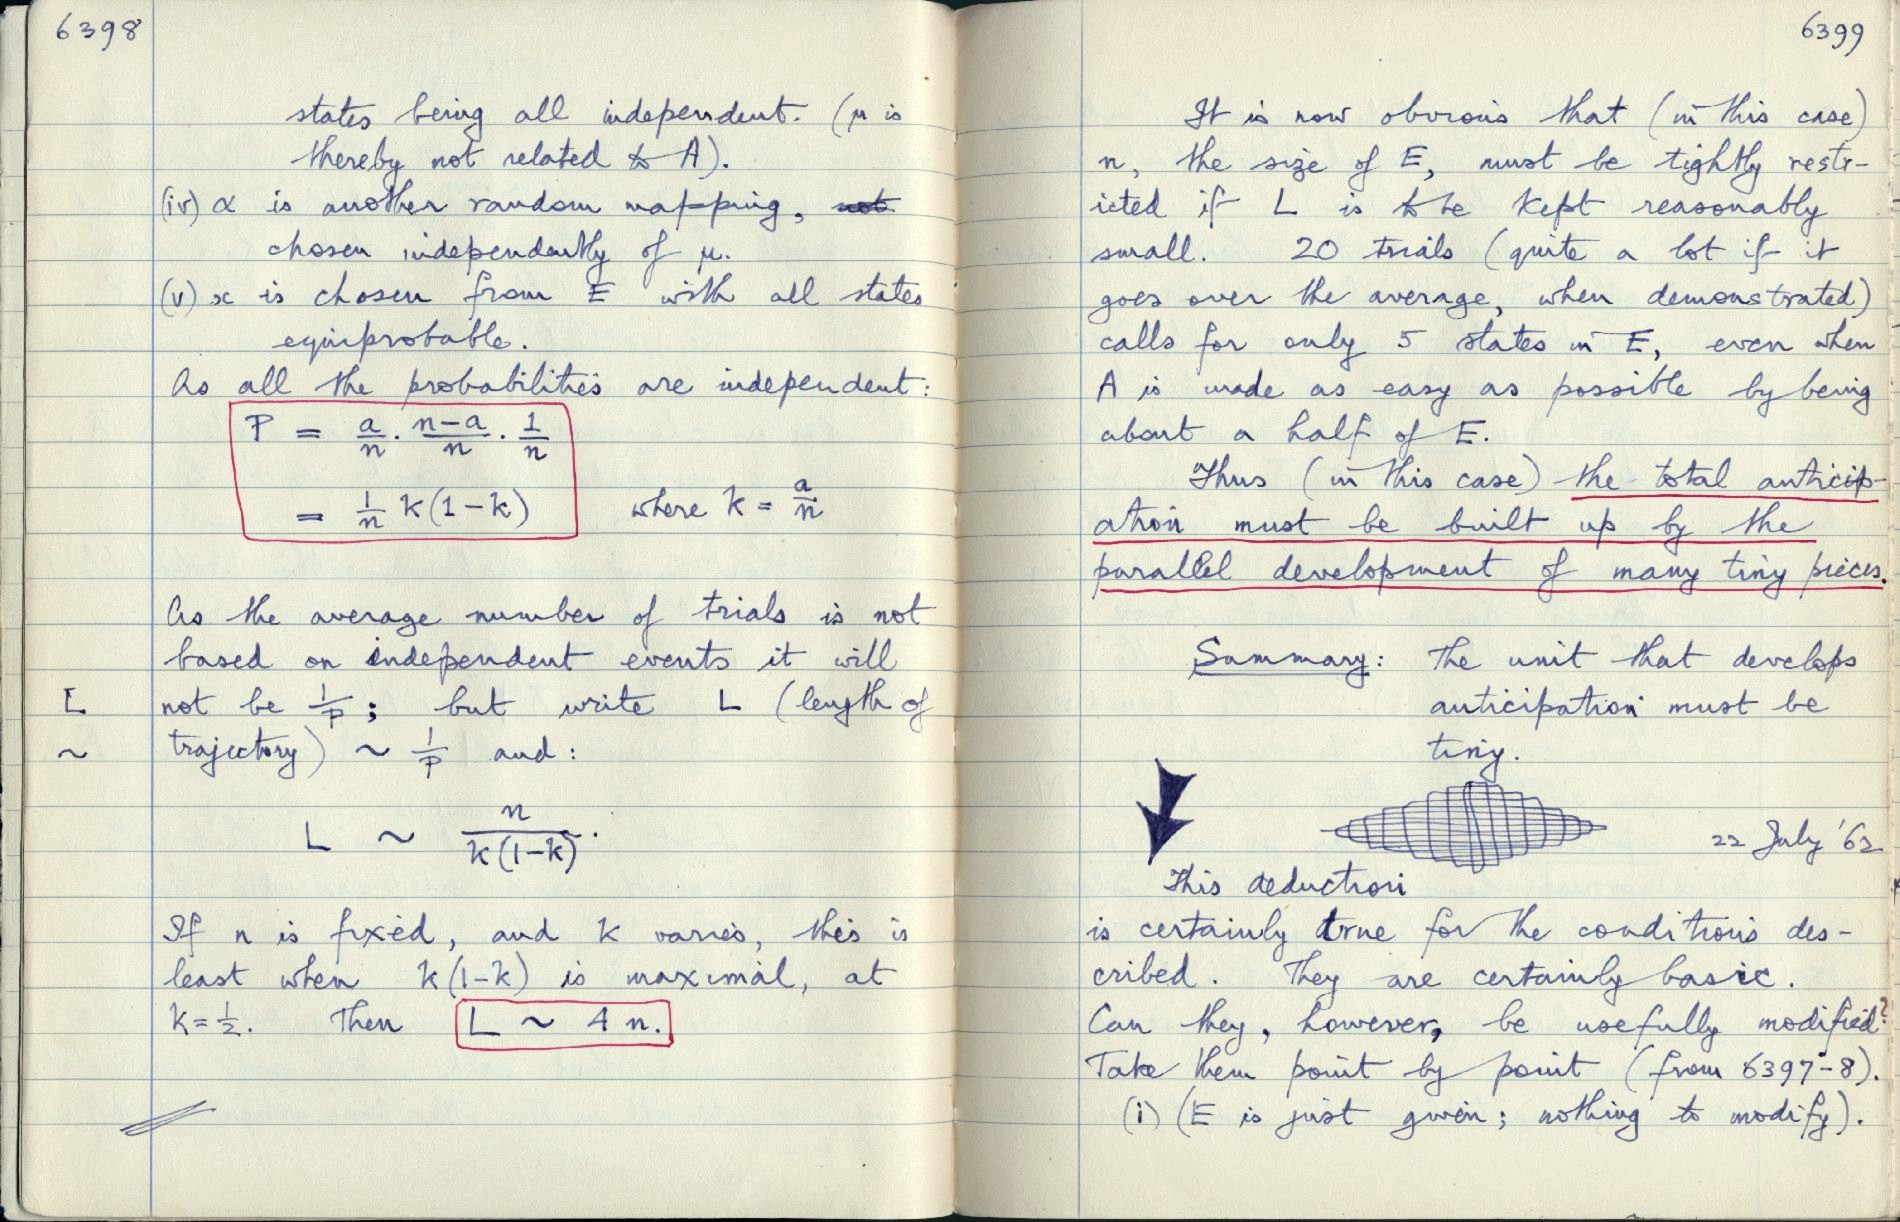 6398
states being all independent. (μ is
thereby not related to A).
(iv) α is another random mapping, not
chosen independently of μ.
(v) x is chosen from E with all states
equiprobable.
As all the probabilities are independent:
P = a/n · n-a/n · 1/n
= 1/n k(1-k) where k = a/n
As the average number of trials is not
based on independent events it will
L not be 1/P; but write L (length of
~ trajectory) ~ 1/P and:
L ~ n/k(1-k).
If n is fixed, and k varies, this is
least when k(1-k) is maximal, at
k=½. Then L ~ 4n.
6399
It is now obvious that (in this case)
n, the size of E, must be tightly restr-
icted if L is to be kept reasonably
small. 20 trials (quite a lot if it
goes over the average, when demonstrated)
calls for only 5 states in E, even when
A is made as easy as possible by being
about a half of E.
Thus (in this case) the total anticip-
ation must be built up by the
parallel development of many tiny pieces.
Summary: The unit that develops
anticipation must be
tiny.
22 July '62
This deduction
is certainly true for the conditions des-
cribed. They are certainly basic.
Can they, however, be usefully modified?
Take them point by point (from 6397-8).
(i) (E is just given; nothing to modify).